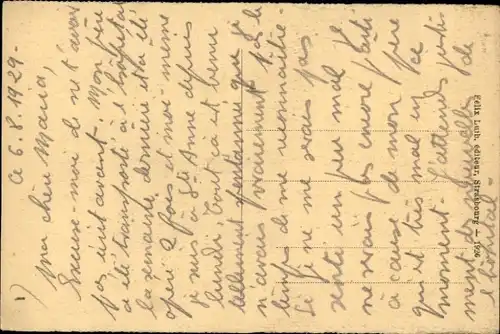 Ce 6.8.1929.
1) Ma chère Maria,
Excuse-moi de ne t'avoir
pas écrit avant. Mon père
a été transporté à l'hôpital
la semaine dernière et a été
opéré 2 fois et moi-même
je suis à Ste Anne depuis
lundi. Tout ça est venu
tellement que je
n'avais vraiment pas le
temps de me reconnaître.
Si je ne me serais pas
senti un peu mal je
ne serais pas encore parti
à cause de mon père
qui est très mal en ce
moment. J'attends
de
Félix Luib, éditeur, Strasbourg — 1926